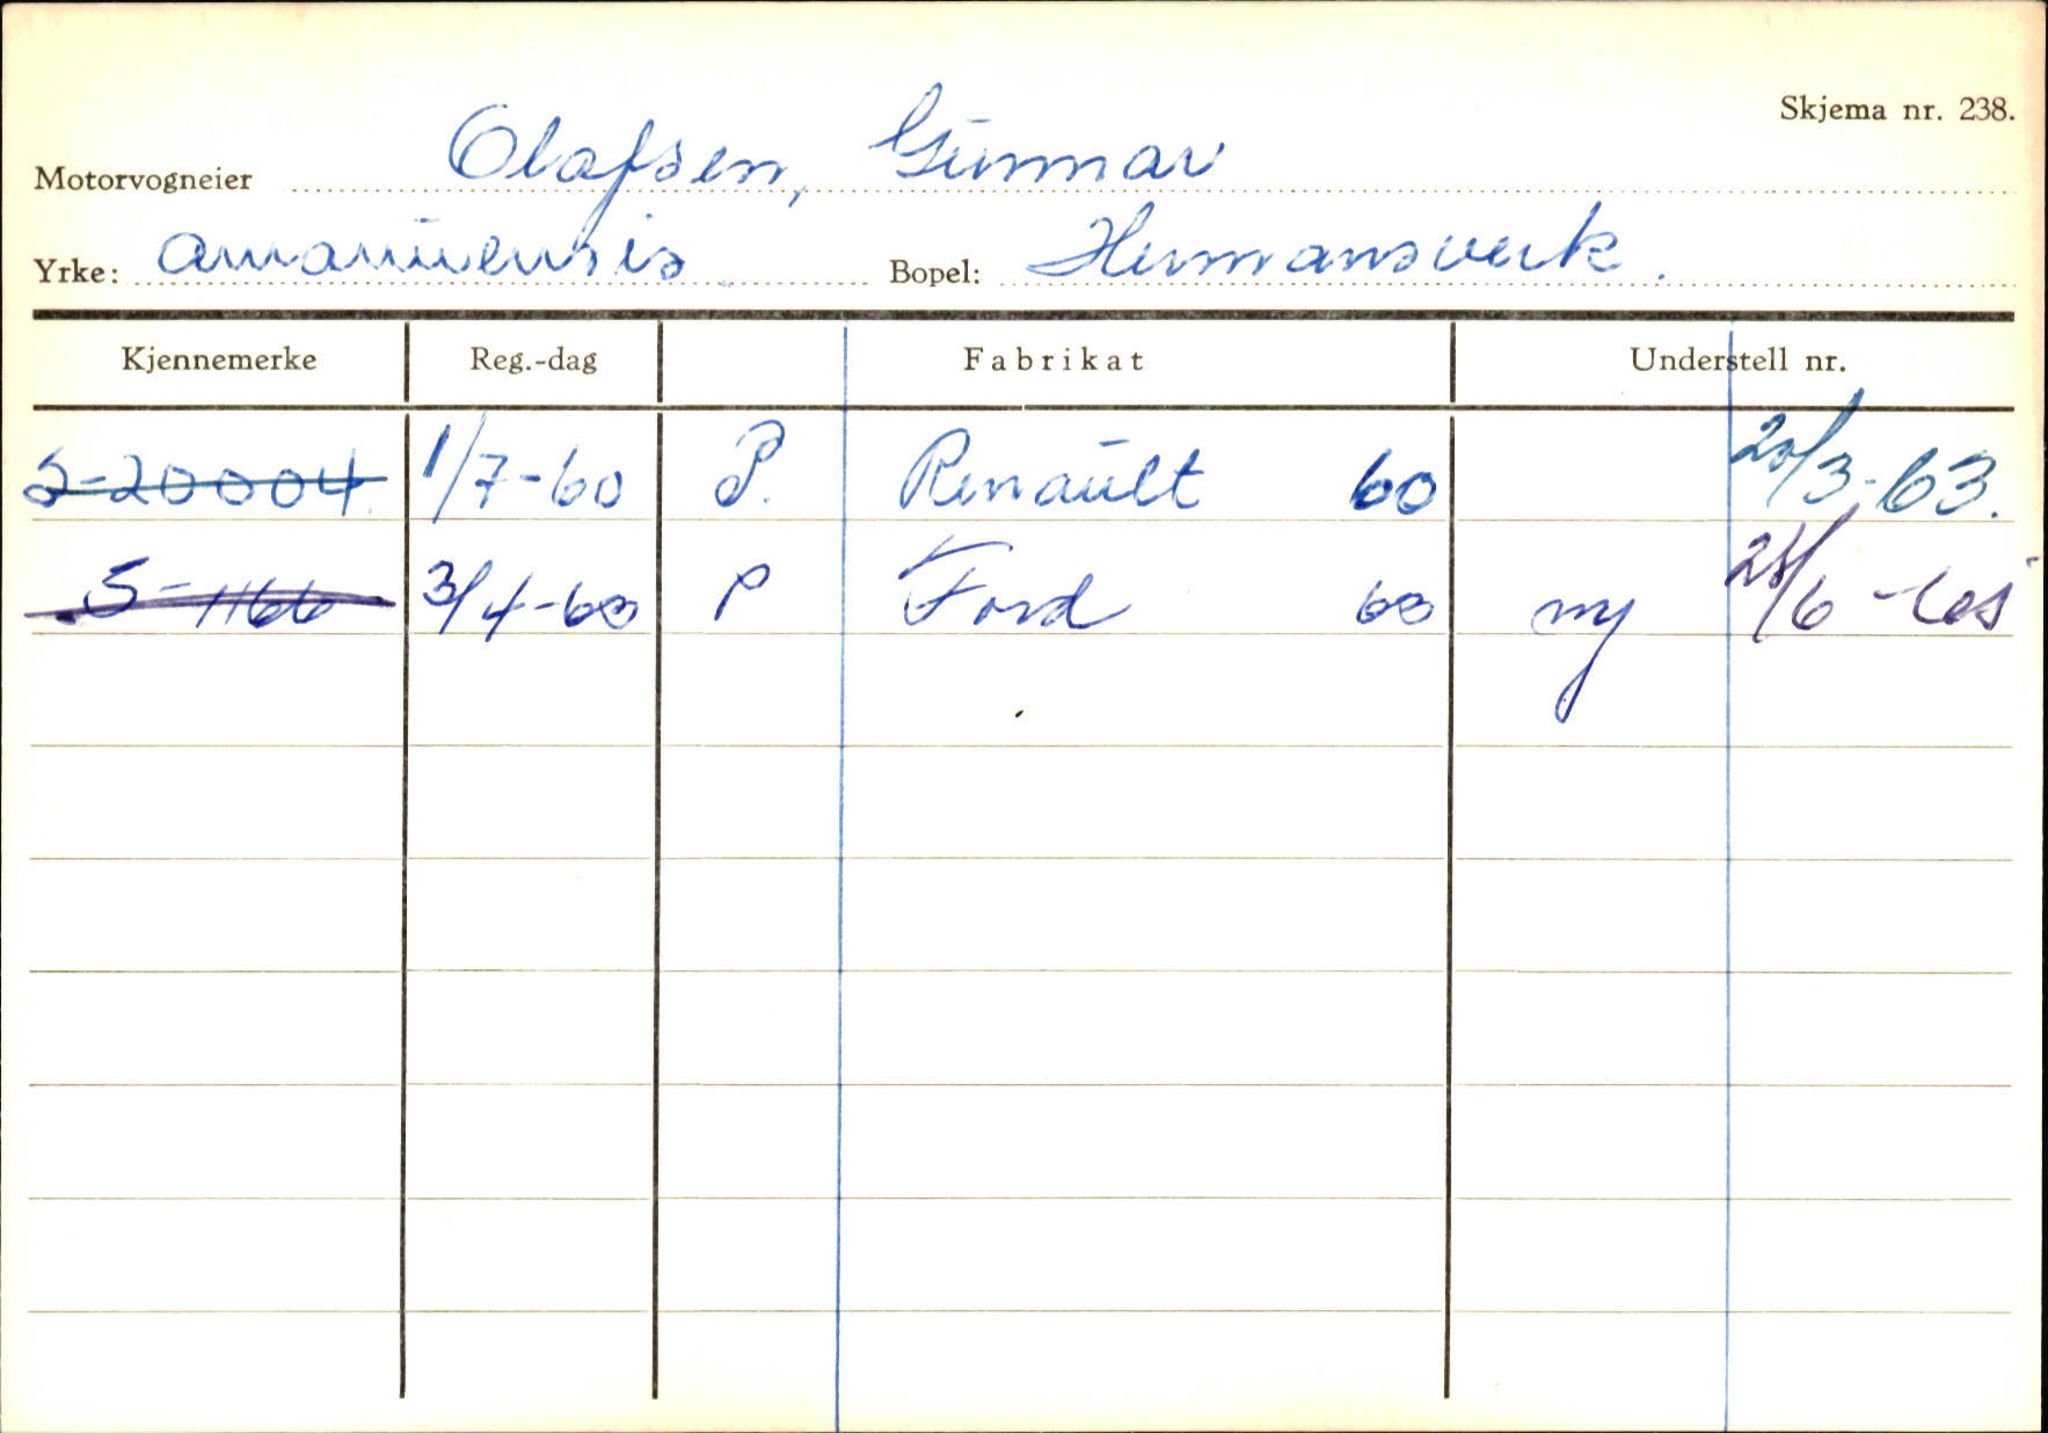 Skjema nr. 238.
Motorvogneier Olafsen, Gunnar
Yrke: amanuensis Bopel: Hermansverk.
Kjennemerke Reg.-dag Fabrikat Understell nr.
S-20004 1/7-60 P. Renault 60 20/3-63.
S-1166 3/4-63 P Ford 63 ny 25/6-65